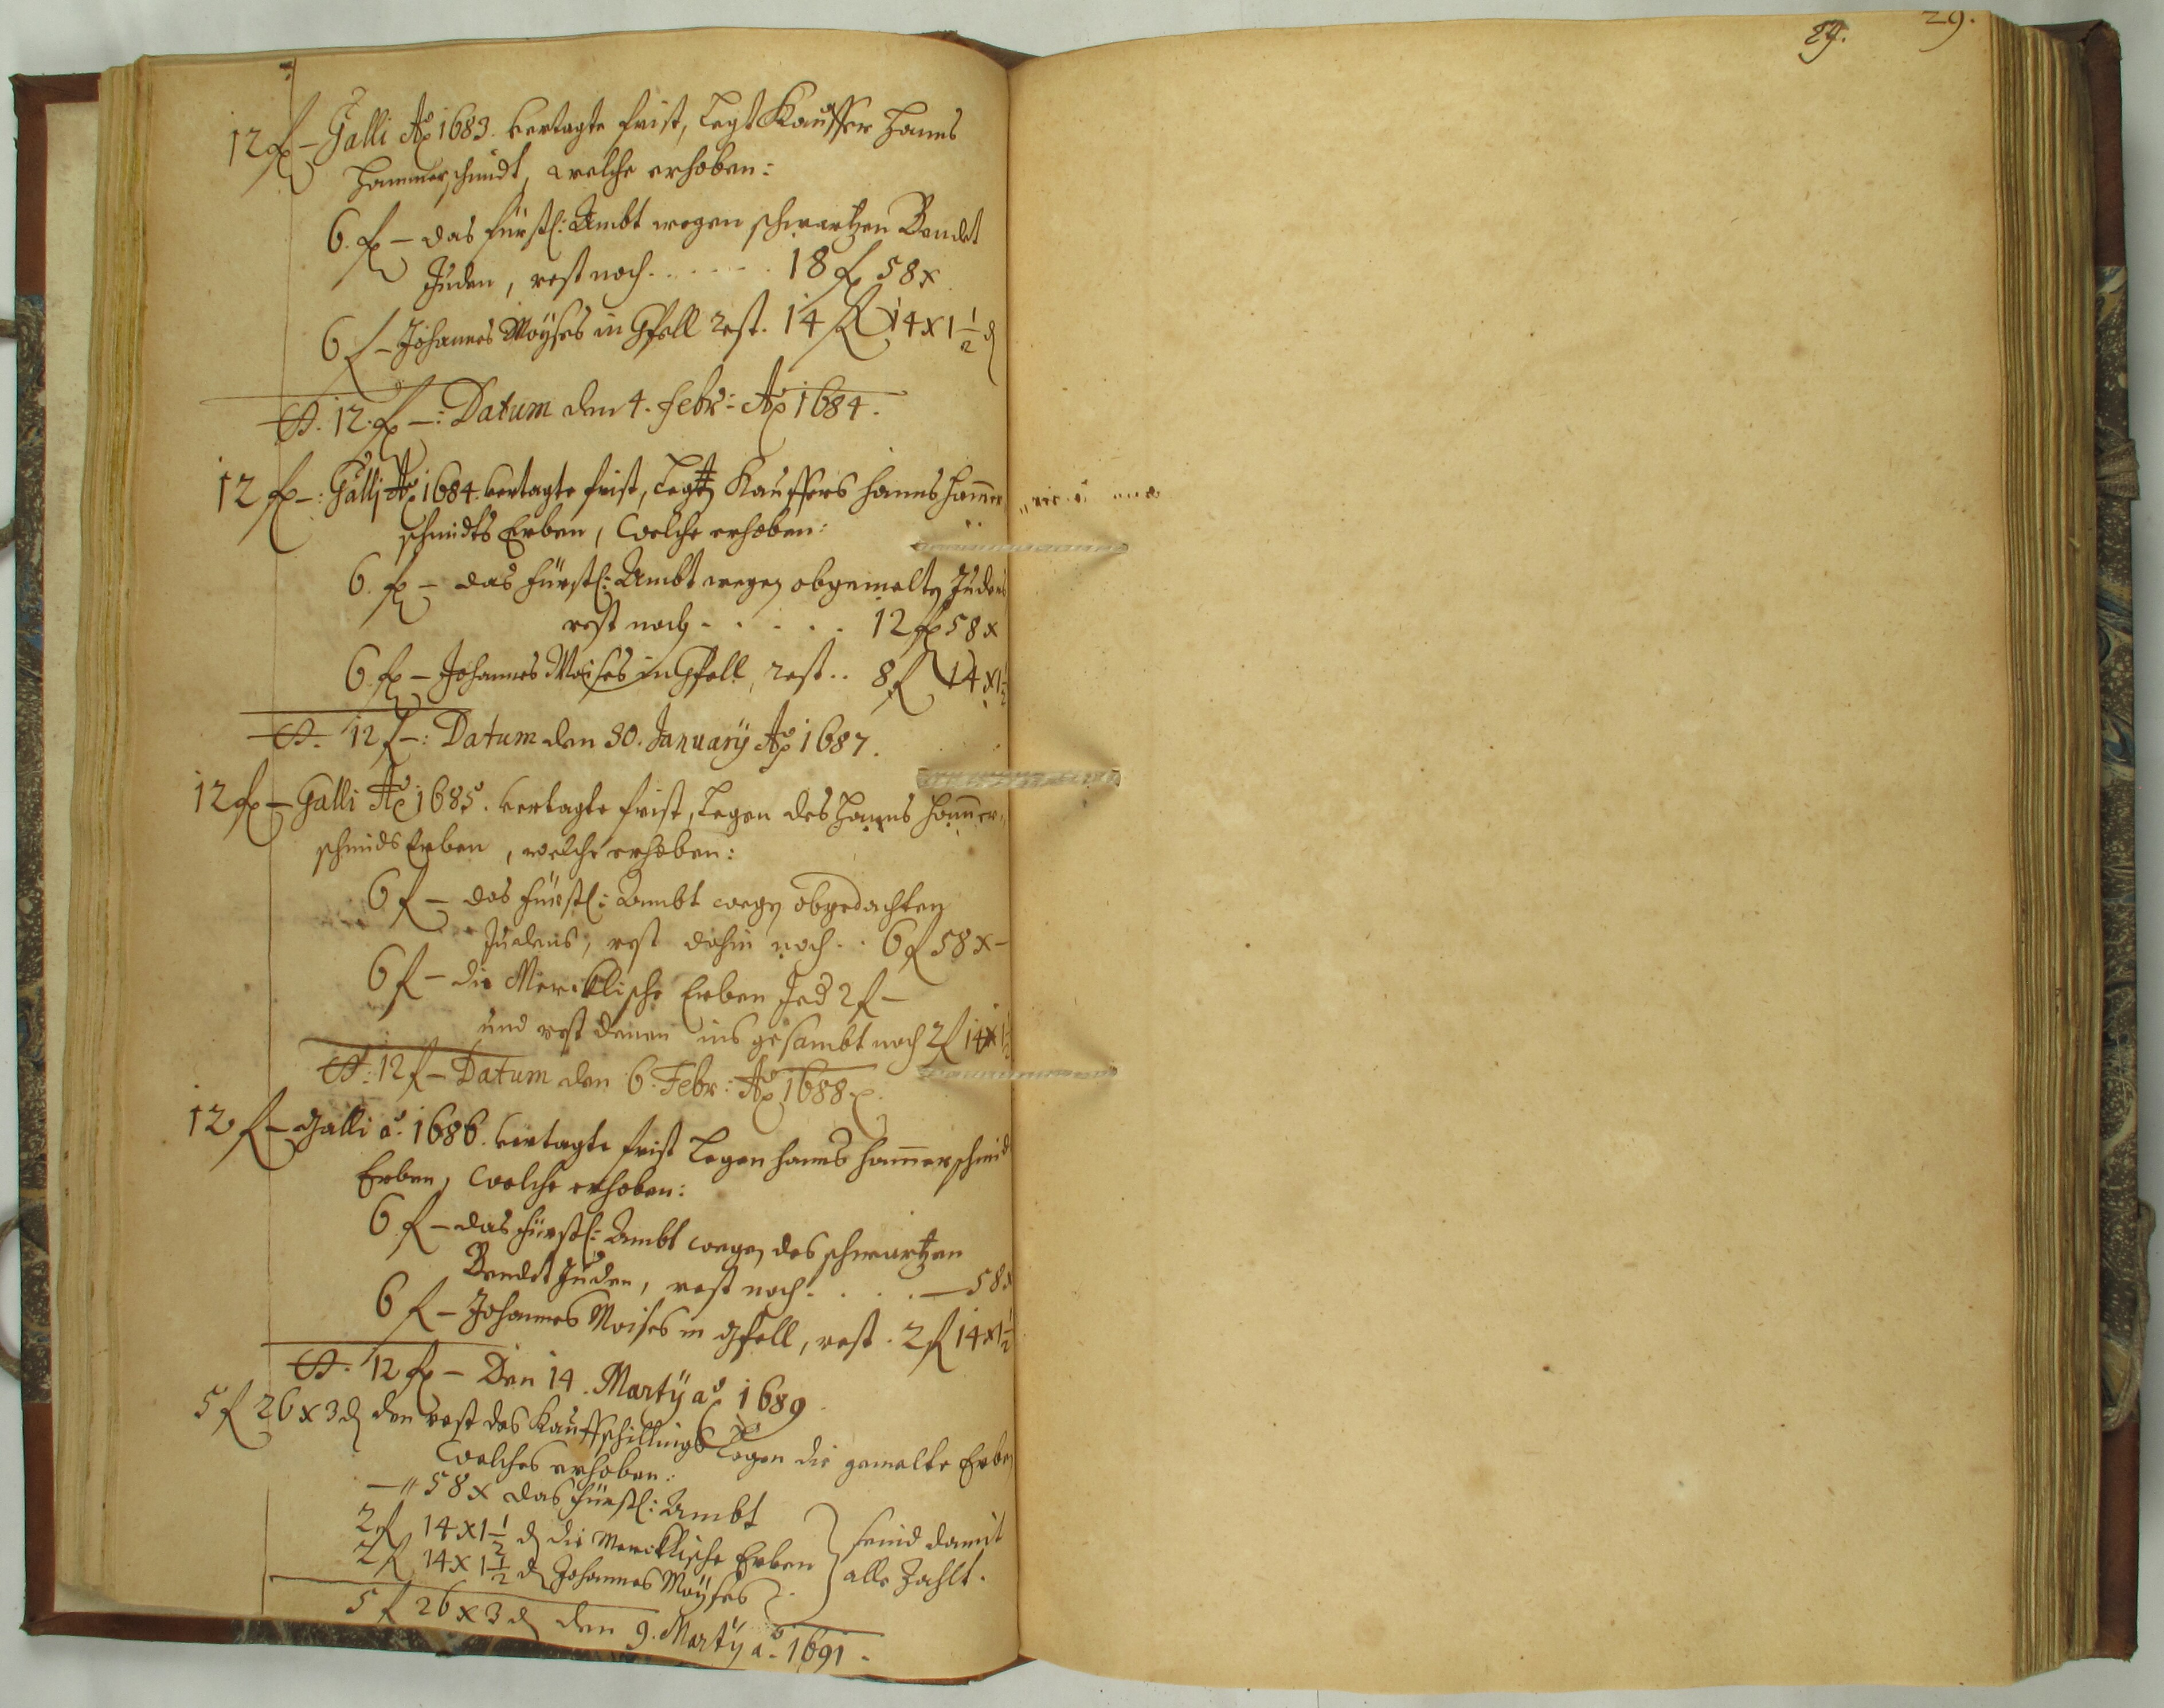 12 f – Galli Aō 1683. vertagte frist, Legt Kauffer Hanns
Hammerschmidt, welche erhoben:
6. f – das fürstl: Ambt wegen schwartzen Bendet
Juden, rest noch . . . . . . 18 f 58 x
6 f – Johannes Moÿses in Gfell rest. 14 f 14 x 1 1/2 d
S. 12. f –: Datum den 4. Febr: Aō 1684.
12 f –: Galli Aō 1684. vertagte frist, Legt Kauffers Hanns Hammer
schmidts Erben, welche erhoben:
6. f – das fürstl: Ambt wegen obgemelts Judens
rest noch . . . . . 12 f 58 x
6. f – Johannes Moises in Gfell, rest . . 8 f 14 x 1 1/2
S. 12 f –: Datum den 30. Januarÿ Aō 1687.
12 f – Galli Aō 1685. vertagte frist, Legen des Hanns Hammer„
schmids Erben, welche erhoben:
6 f – das fürstl: Ambt wegen obgedachten
Judens, rest dahin noch . . 6 f 58 x –
6 f – die Mericklische Erben Jed 2 f –
und rest denen ins gesambt noch 2 f 14 x 1 1/2
S. 12 f – Datum den 6. Febr: Aō 1688.
12 f – Galli aō. 1686. vertagte frist Legen Hanns Hammerschmid
Erben, welche erhoben:
6 f – das fürstl: Ambt wegen des schwartzen
Bendet Juden, rest noch . . . . – 58 x
6 f – Johannes Moises in Gfell, rest . 2 f 14 x 1 1/2
S. 12 f – Den 14. Martÿ aō 1689
5 f 26 x 3 d den rest des Kauffschillings Legen die gemelte Erben
welches erhoben:
– „ 58 x das fürstl: Ambt
2 f 14 x 1 1/2 d die Mericklische Erben } seind damit
2 f 14 x 1 1/2 d Johannes Moÿses } alle Zahlt.
5 f 26 x 3 d den 9. Martÿ aō. 1691.
29.
29.